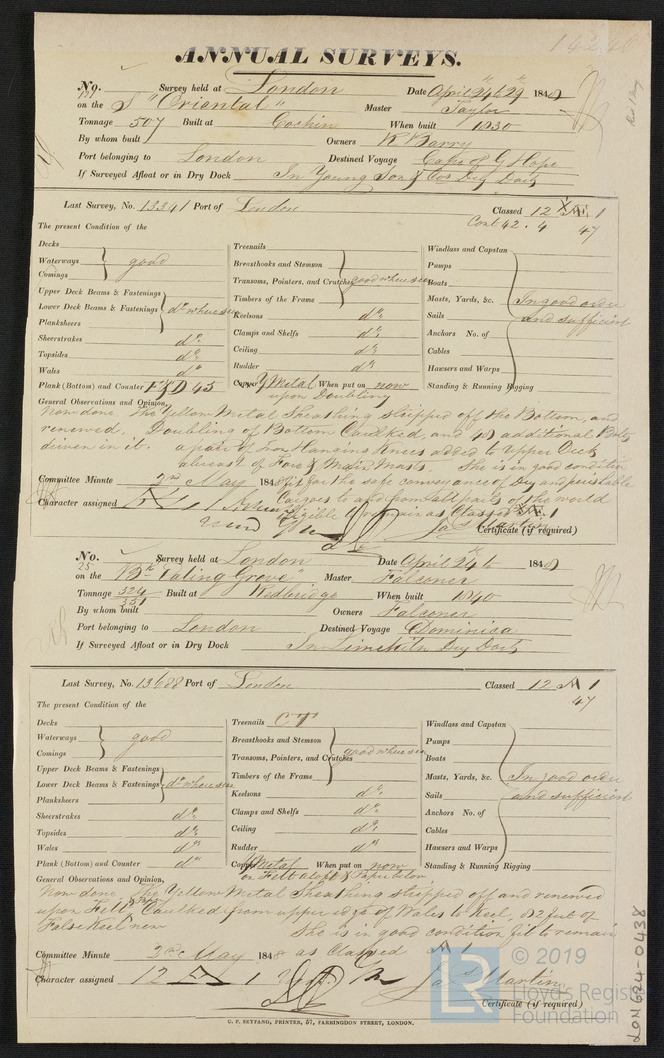 ANNUAL SURVEYS.
No. Survey held at London Date April 24 to 29 1848
on the S "Oriental" Master Taylor
Tonnage 507 Built at Cochin When built 1830
By whom built Owners R Barry
Port belonging to London Destined Voyage Cape of G Hope
If Surveyed Afloat or in Dry Dock In Young Son & Cos Dry Dock
Last Survey, No. 13341 Port of London Classed 12 1
Cont 42.4 47
The present Condition of the
Decks
Waterways good
Comings
Upper Deck Beams & Fastenings
Lower Deck Beams & Fastenings do where seen
Planksheers
Sheerstrakes do
Topsides do
Wales do
Plank (Bottom) and Counter 45
Treenails
Breasthooks and Stemson
Transoms, Pointers, and Crutches good where seen
Timbers of the Frame
Keelsons do
Clamps and Shelfs do
Ceiling do
Rudder do
Copper Y Metal When put on now
upon Doubling
Windlass and Capstan
Pumps
Boats
Masts, Yards, &c. In good order
Sails and sufficient
Anchors No. of
Cables
Hawsers and Warps
Standing & Running Rigging
General Observations and Opinion,
Now done The Yellow Metal Sheathing stripped off the Bottom, and
renewed. Doubling of Bottom Caulked, and 40 additional Bolts
driven in it. a pair of Iron Hanging Knees added to upper Deck
abreast of Fore & Main Masts. She is in good condition
Committee Minute 2nd May 1848 fit for the safe conveyance of Dry and perishable
Cargoes to and from all parts of the world
Character assigned 1 Eligible to remain as Classed 1
Jas Martin
Certificate (if required)
No. 25 Survey held at London Date April 24 to 1848
on the Bk Ealing Grove Master Falconer
Tonnage 324 351 Built at Redbridge When built 1840
By whom built Owners Falconer
Port belonging to London Destined Voyage Dominica
If Surveyed Afloat or in Dry Dock In Limekiln Dry Dock
Last Survey, No. 13688 Port of London Classed 12 A 1
47
The present Condition of the
Decks
Waterways good
Comings
Upper Deck Beams & Fastenings
Lower Deck Beams & Fastenings do where seen
Planksheers
Sheerstrakes do
Topsides do
Wales do
Plank (Bottom) and Counter do
Treenails CT
Breasthooks and Stemson
Transoms, Pointers, and Crutches good where seen
Timbers of the Frame
Keelsons do
Clamps and Shelfs do
Ceiling do
Rudder do
Copper Y Metal When put on now
on Felt aloft & Paper below
Windlass and Capstan
Pumps
Boats
Masts, Yards, &c. In good order
Sails and sufficient
Anchors No. of
Cables
Hawsers and Warps
Standing & Running Rigging
General Observations and Opinion,
Now done The Yellow Metal Sheathing stripped off and renewed
upon Felt & Paper Caulked from upper edge of Wales to Keel, 82 feet of
False Keel new She is in good condition fit to remain
Committee Minute 2nd May 1848 as Classed A 1
Character assigned 12 A 1 Jas Martin
Certificate (if required)
C. F. SEYFANG, PRINTER, 57, FARRINGDON STREET, LONDON.
LON624-0438
LR
© 2019
Lloyd's Register
Foundation